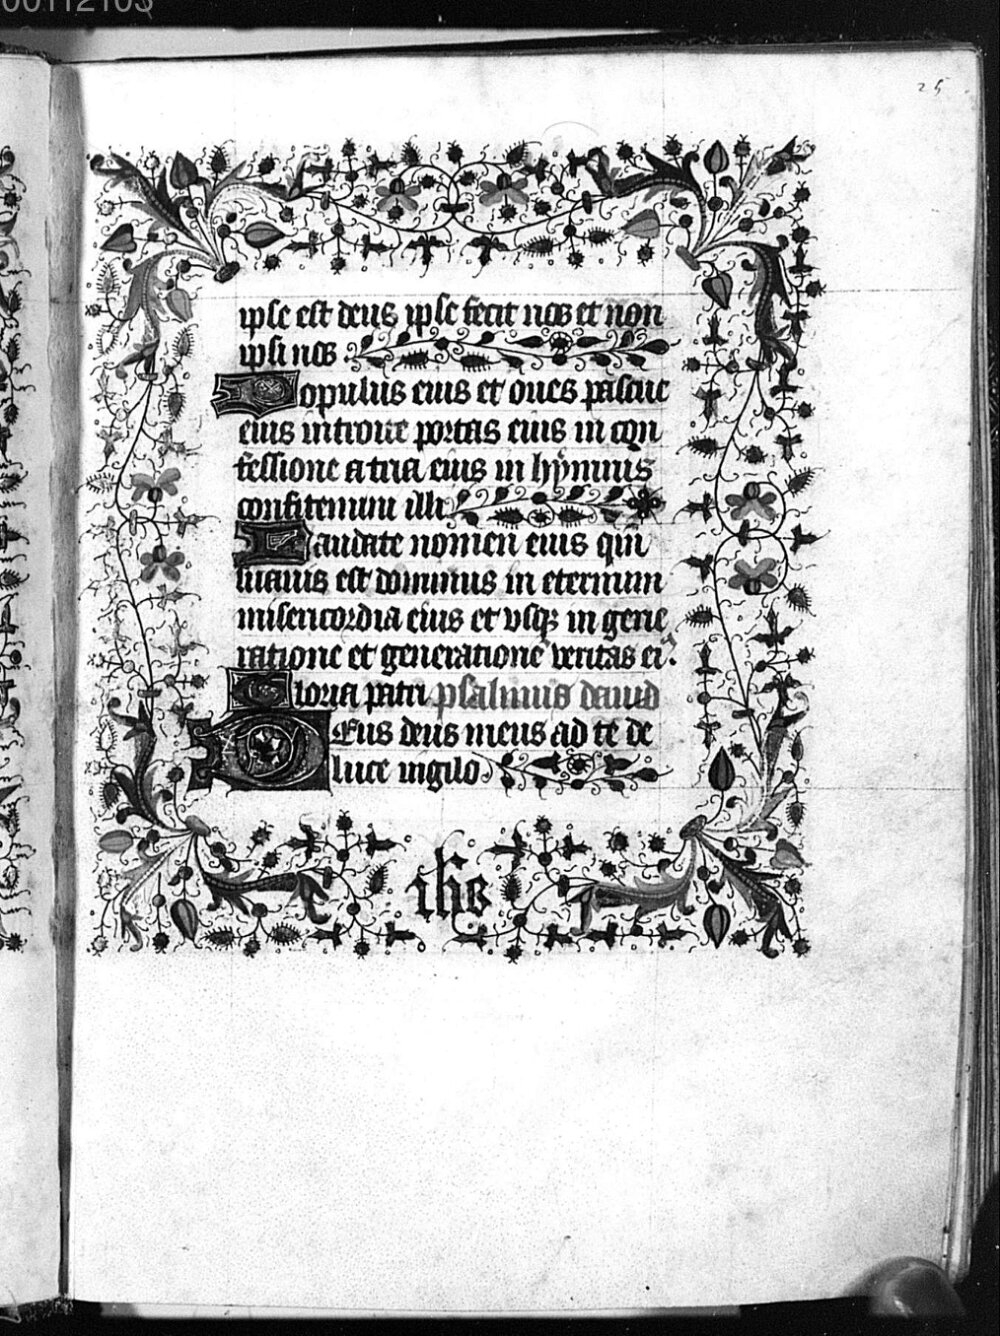 00112103
25
ipse est deus ipse fecit nos et non
ipsi nos
Populus eius et oues pascue
eius introite portas eius in con
fessione atria eius in hymnis
confitemini illi
Laudate nomen eius qm̄
suauis est dominus in eternum
misericordia eius et vsqꝫ in gene
ratione et generatione veritas ei⁹.
Gloria patri psalmus dauid
DEus deus meus ad te de
luce vigilo
ihs